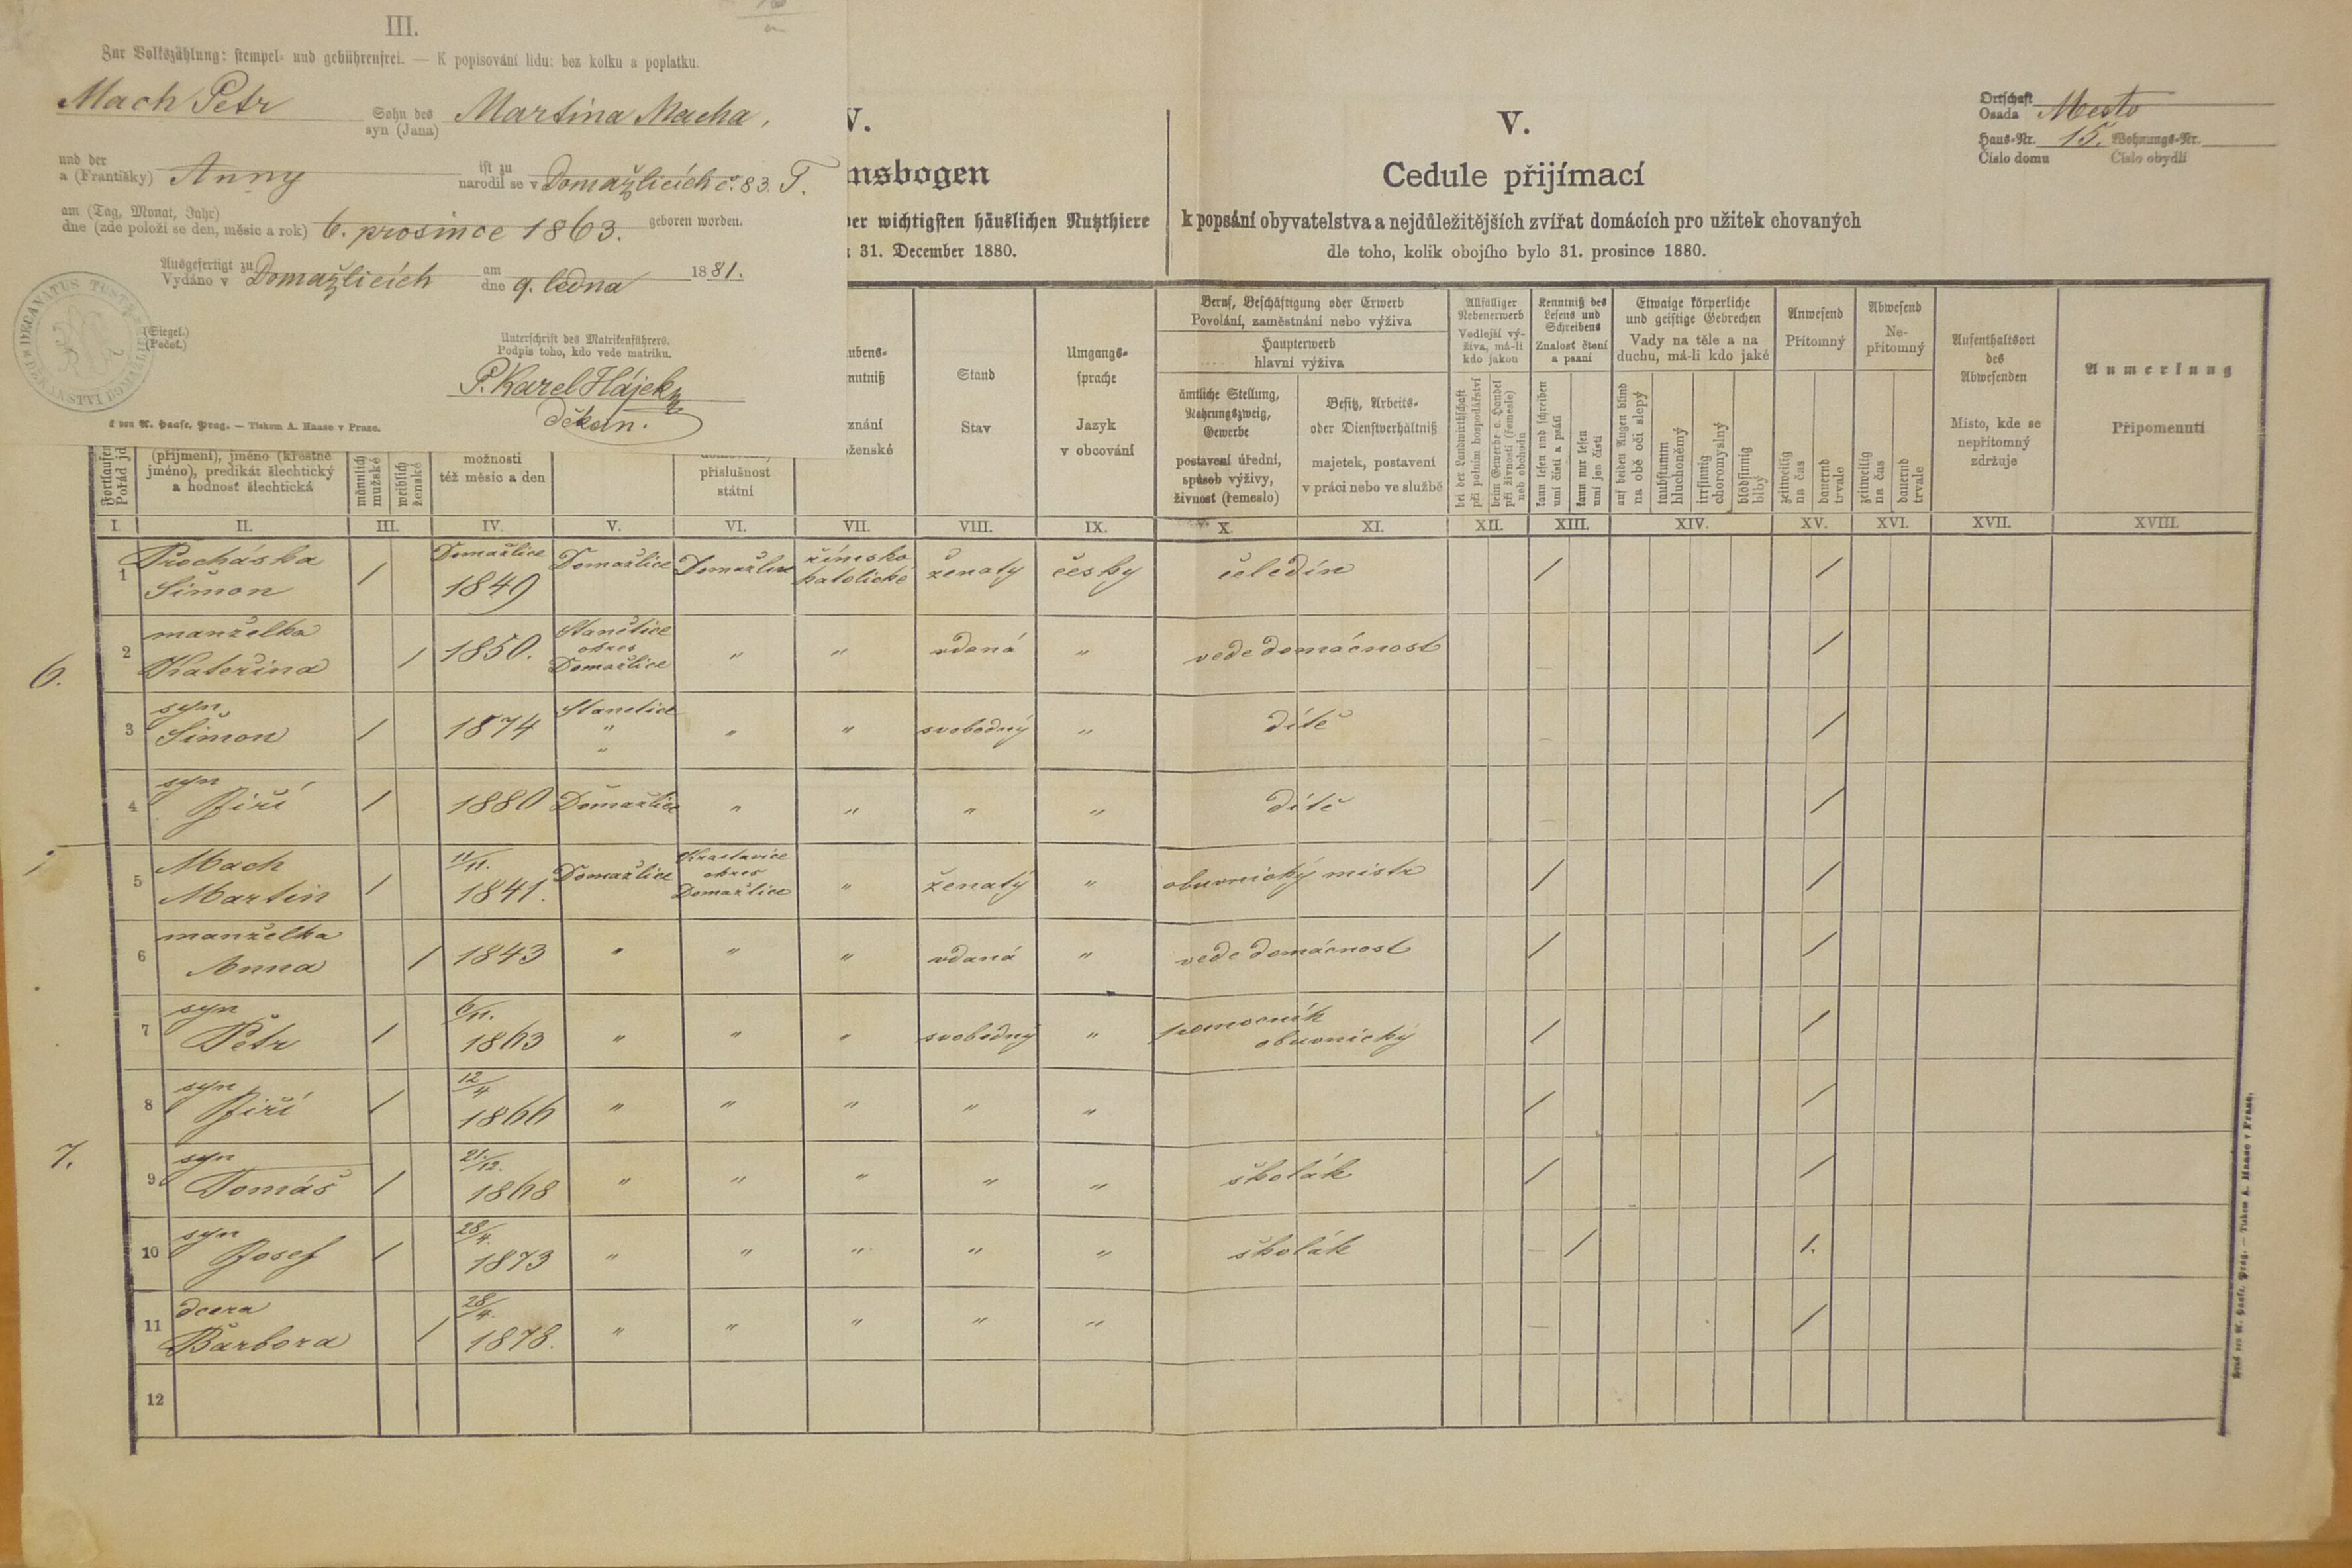 III.
Zur Volkszählung: stempel- und gebührenfrei. — K popisování lidu: bez kolku a poplatku.
Mach Petr Sohn des syn (Jana) Martina Macha,
und der
a (Františky) Anny ist zu narodil se v Domažlicích č. 83. T.
am (Tag, Monat, Jahr)
dne (zde položí se den, měsíc a rok) 6. prosince 1863. geboren worden.
Ausgefertigt zu
Vydáno v Domažlicích am dne 9. ledna 1881.
(Siegel.)
(Pečeť.)
Unterschrift des Matrikenführers.
Podpis toho, kdo vede matriku.
P. Karel Hájek
děkan.
A. Haase, Prag. — Tiskem A. Haase v Praze.
V.
nsbogen
der wichtigsten häuslichen Nutzthiere
31. December 1880.
V.
Cedule přijímací
k popsání obyvatelstva a nejdůležitějších zvířat domácích pro užitek chovaných
dle toho, kolik obojího bylo 31. prosince 1880.
Ortschaft
Osada Město
Haus-Nr. 15. Wohnungs-Nr.
Číslo domu Číslo obydlí
(příjmení), jméno (křestné jméno), predikát šlechtický a hodnosť šlechtická
männlich mužské
weiblich ženské
možnosti též měsíc a den
příslušnost státní
Stand Stav
Umgangssprache Jazyk v obcování
Beruf, Beschäftigung oder Erwerb
Povolání, zaměstnání nebo výživa
Haupterwerb
hlavní výživa
ämtliche Stellung, Nahrungszweig, Gewerbe
postavení úřední, spůsob výživy, živnost (řemeslo)
Besitz, Arbeits- oder Dienstverhältniß
majetek, postavení v práci nebo ve službě
Allfälliger Nebenerwerb
Vedlejší výživa, má-li kdo jakou
bei der Landwirthschaft
při polním hospodářství
beim Gewerbe o. Handel
při živnosti (řemesle) neb obchodu
Kenntniß des Lesens und Schreibens
Znalosť čtení a psaní
kann lesen und schreiben
umí čísti a psáti
kann nur lesen
umí jen čísti
Etwaige körperliche und geistige Gebrechen
Vady na těle a na duchu, má-li kdo jaké
auf beiden Augen blind
na obě oči slepý
taubstumm
hluchoněmý
irrsinnig
choromyslný
blödsinnig
blbý
Anwesend
Přítomný
zeitweilig na čas
dauernd trvale
Abwesend
Nepřítomný
zeitweilig na čas
dauernd trvale
Aufenthaltsort des Abwesenden
Místo, kde se nepřítomný zdržuje
Anmerkung
Připomenutí
I. II. III. IV. V. VI. VII. VIII. IX. X. XI. XII. XIII. XIV. XV. XVI. XVII. XVIII.
1 Procháska Šimon / Domažlice 1849 Domažlice Domažlice římsko katolické ženatý česky čeledín / /
6.
2 manželka Kateřina / 1850. Stanětice okres Domažlice " " vdaná " vede domácnost /
3 syn Šimon / 1874 Stanětice " " " " svobodný " dítě /
4 syn Jiří / 1880 Domažlice " " " " dítě /
5 Mach Martin / 11/11. 1841. Domažlice Chrastavice okres Domažlice " ženatý " obuvnický mistr / /
6 manželka Anna / 1843 " " " vdaná " vede domácnost / /
7 syn Petr / 6/11. 1863 " " " svobodný " pomocník obuvnický / /
8 syn Jiří / 12/4 1866 " " " " " / /
7.
9 syn Tomáš / 21./12. 1868 " " " " " školák / /
10 syn Josef / 28/4. 1873 " " " " " školák / /.
11 dcera Barbora / 28/4. 1878. " " " " " /
12
Druck von A. Haase, Prag. — Tiskem A. Haase v Praze.